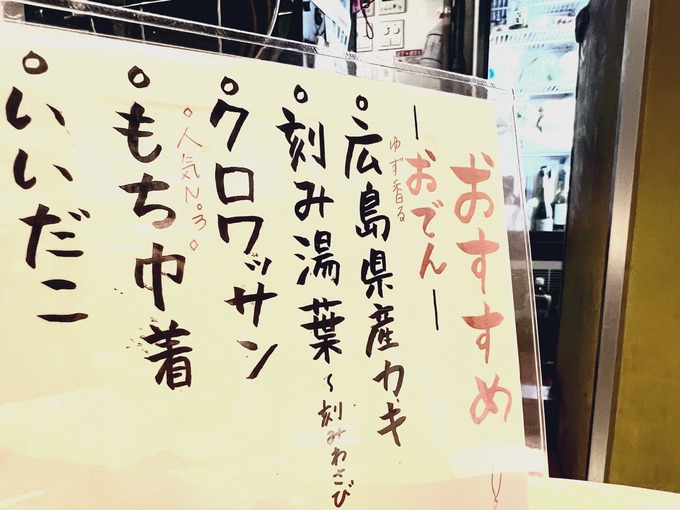 おすすめ
ーおでんー
ゆず香る
。広島県産カキ
。刻み湯葉〜刻みわさび
。クロワッサン
。人気No3。
。もち巾着
。いいだこ